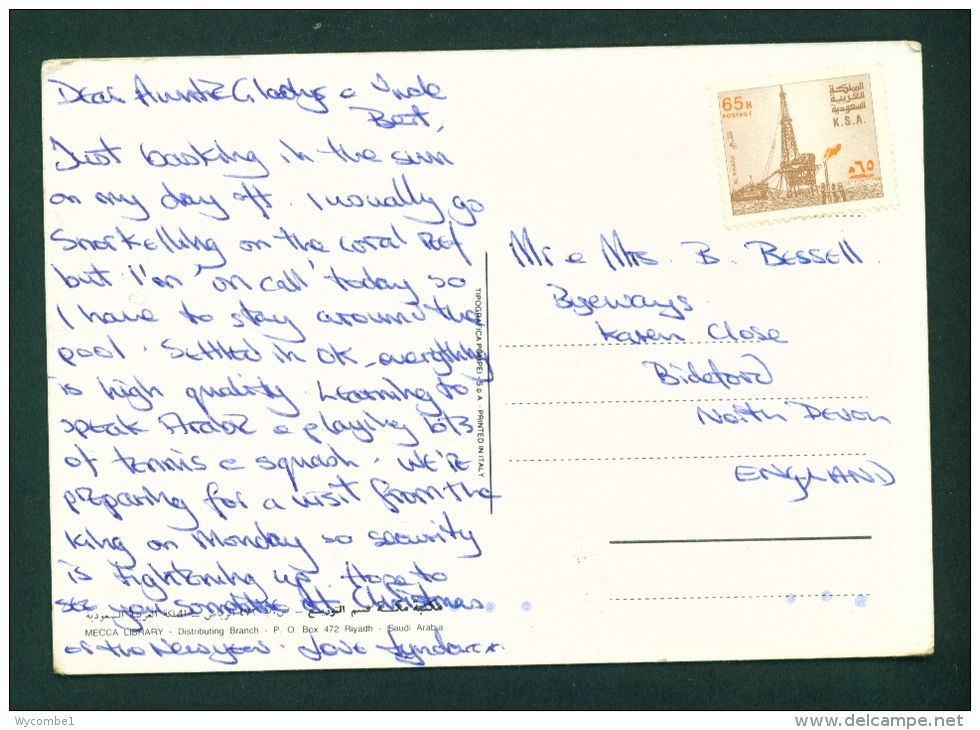 Dear Auntie Gladys & Uncle
Bert,
Just basking in the sun
on my day off. I usually go
snorkelling on the coral reef
but I'm 'on call' today so
I have to stay around the
pool. Settled in OK - everything
is high quality. Learning to
speak Arabic & playing lots
of tennis & squash. We're
preparing for a visit from the
King on Monday so security
is tightening up. Hope to
see you sometime at Christmas
or the New year. Love Lynda xx.
MECCA LIBRARY - Distributing Branch - P. O. Box 472 Riyadh - Saudi Arabia
TIPOGRAFICA POMPEI S p A - PRINTED IN ITALY
65H
POSTAGE
المملكة
العربية
السعودية
K.S.A.
AL KHAFJI
٦٥
Mr & Mrs. B. BESSELL.
Byeways.
Karen Close
Bideford
North Devon
ENGLAND
Wycombe1
www.delcampe.net